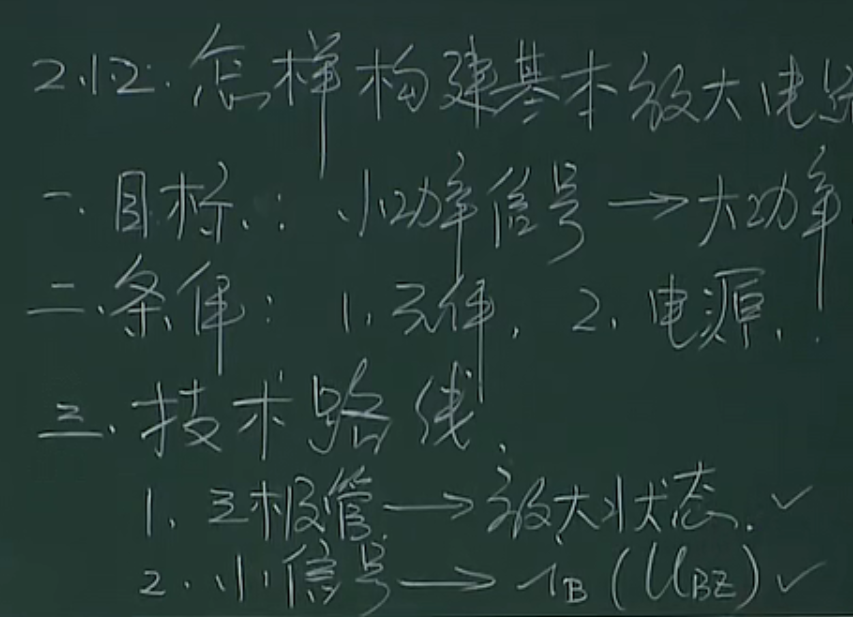 2.1.2. 怎样构建基本放大电路
一. 目标: 小功率信号 → 大功率
二. 条件: 1. 元件. 2. 电源.
三. 技术路线.
1. 三极管 → 放大状态. ✓
2. 小信号 → iB (UBE) ✓